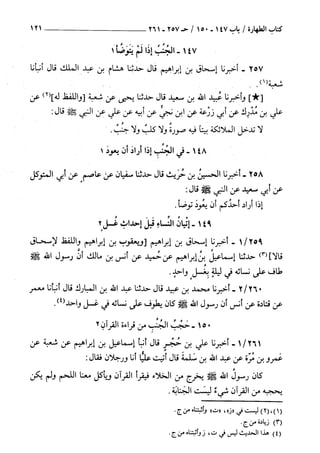 كتاب الطهارة / باب ١٤٧ - ١٥٠ / حـ ٢٥٧ - ٢٦١ ١٢١
١٤٧ - الجُنُبُ إِذَا لَمْ يَتَوَضَّأ ١
٢٥٧ - أخبرنا إسحاق بن إبراهيم قال حدثنا هشام بن عبد الملك قال أنبأنا
شعبة(١).
[★] وأخبرنا عُبيد الله بن سعيد قال حدثنا يحيى عن شعبة [واللفظ له](٢) عن
علي بن مُدْرِك عن أبي زرعة عن ابن نجيّ عن أبيه عن علي عن النبي ﷺ قال:
لا تدخل الملائكة بيتاً فيه صورةٌ ولا كلبٌ ولا جنُبٌ.
١٤٨ - في الجُنُبِ إِذا أراد أن يعودَ ١
٢٥٨ - أخبرنا الحسينُ بن حُرَيث قال حدثنا سفيان عن عاصم عن أبي المتوكل
عن أبي سعيد عن النبي ﷺ قال:
إذا أراد أحدكم أن يَعُودَ توضأ.
١٤٩ - إتيانُ النساء قَبْلَ إحداثِ غُسل ٢
٢٥٩/ ١ - أخبرنا إسحاق بن إبراهيم [ويعقوب بن إبراهيم واللفظ لإسحاق
قالا](٣) حدثنا إسماعيلُ بنُ إبراهيم عن حُميد عن أنس بن مالك أنَّ رسول الله ﷺ
طاف على نسائه في ليلةٍ بِغُسلٍ واحدٍ.
٢٦٠/ ٢ - أخبرنا محمد بن عبيد قال حدثنا عبد الله بن المبارك قال أنبأنا معمر
عن قتادة عن أنس أن رسول الله ﷺ كان يطوف على نسائه في غسل واحد(٤).
١٥٠ - حَجْبُ الجُنُبِ من قراءة القرآن ٢
٢٦١/ ١ - أخبرنا علي بن حُجْرٍ قال أنبأ إسماعيل بن إبراهيم عن شعبة عن
عمرو بن مُرّة عن عبد الله بن سَلِمةَ قال أتيت عليًّا أنا ورجلان فقال:
كان رسولُ الله ﷺ يخرج من الخلاء فيقرأ القرآن ويأكل معنا اللحم ولم يكن
يحجبه من القرآن شيءٌ ليست الجنابَة.
(١)، (٢) ليست في وتثبتناه من ج.
(٣) زيادة من ج.
(٤) هذا الحديث ليس في ت، ز وأثبتناه من ج.